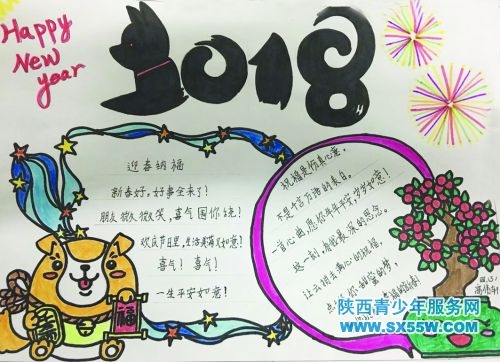 Happy
New
year
2018
迎春纳福
新春好。好事全来了！
朋友微微笑，喜气围你绕！
欢庆节日里，生活美满又如意！
喜气！喜气！
一生平安如意！
祝福是份真心意，
不是千言万语的表白。
一首心曲，愿你年年平安，岁岁如意！
这一刻，有我最深的思念。
让云捎去满心的祝福，
点缀你甜蜜的梦，
福
陕西青少年服务网
www.sx55w.com